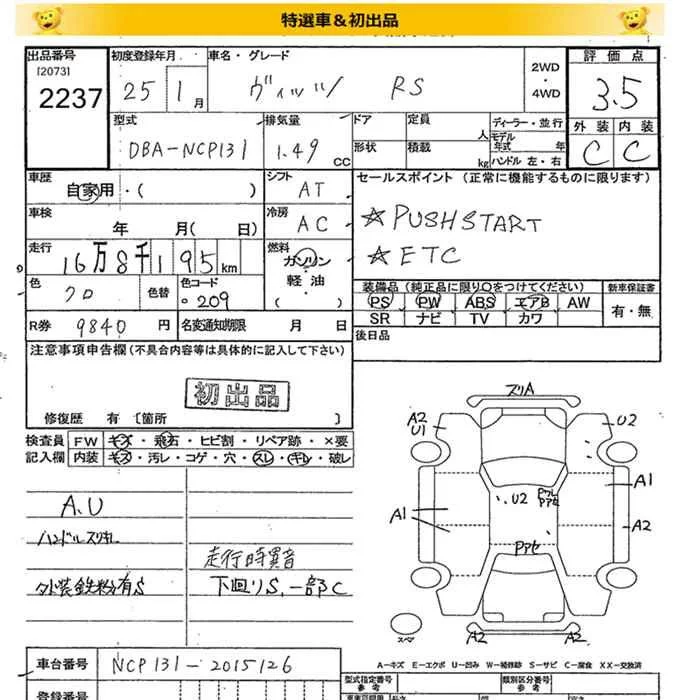 特選車＆初出品
出品番号 初度登録年月 車名・グレード 2WD 評価点
[2073] 2237 25 1月 ヴィッツ RS ・4WD 3.5
型式 排気量 ドア 定員 ディーラー・並行 外装 内装
DBA-NCP131 1.49 CC 形状 積載 人 kg モデル年式 年 ハンドル 左・右 C C
車歴 自家用・( ) シフト AT セールスポイント (正常に機能するものに限ります)
車検 年 月( 日) 冷房 AC ☆PUSHSTART
走行 16万8千195km 燃料 ガソリン 軽油 ☆ETC
色 クロ 色替 色コード 209 装備品 (純正品に限り○をつけてください) 新車保証書
PS PW ABS エアB AW 有・無
SR ナビ TV カワ
R券 9840円 名変通知期限 月 日 後日品
注意事項申告欄(不具合内容等は具体的に記入して下さい)
初出品
修復歴 有 [箇所 ]
検査員 FW キズ・飛石・ヒビ割・リペア跡・×要
記入欄 内装 キズ・汚レ・コゲ・穴・スレ・キレ・破レ
A.U
ハンドルスリキレ
走行時異音
外装鉄粉有S 下回りS、一部C
ズリA
A2 U1
U2
A1
U2
A1
A2
Pアセ
スペア
A2
A2
A－キズ E－エクボ U－凹み W－補修跡 S－サビ C－腐食 XX－交換済
車台番号 NCP131-2015126
型式指定番号 参考 類別区分番号 参考
登録番号